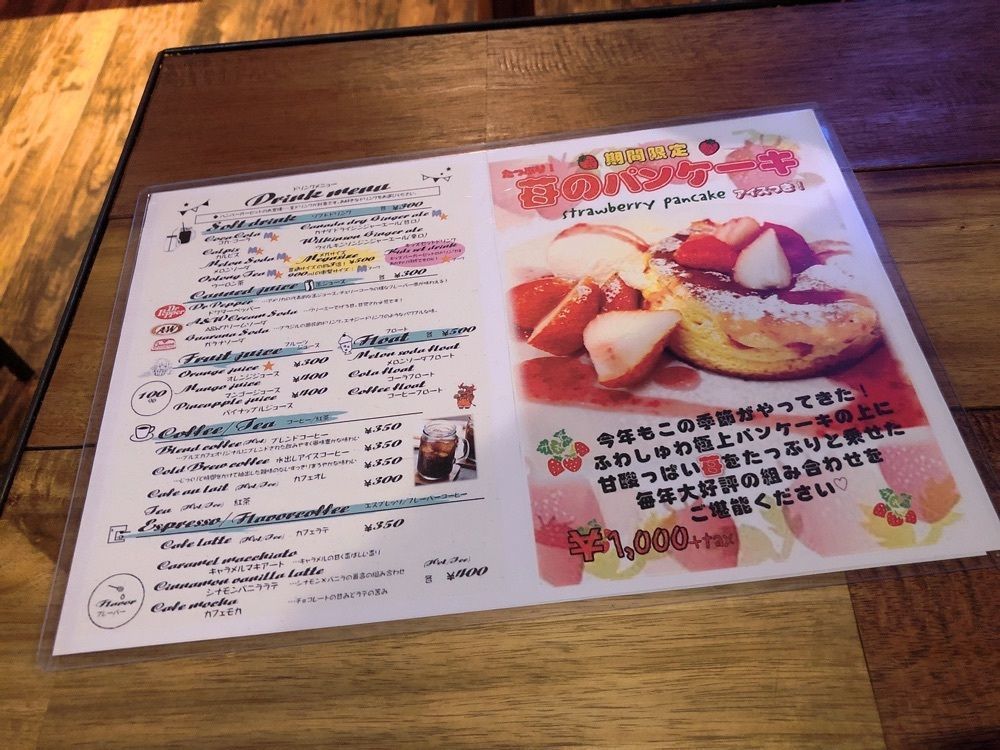 ドリンクメニュー
Drink menu
Soft drink ソフトドリンク 各 ¥300
Coca Cola
コカ・コーラ
Calpis
カルピス
Melon Soda
メロンソーダ
Oolong Tea
ウーロン茶
Canada dry Ginger ale
カナダドライジンジャーエール(甘口)
Wilkinson Ginger ale
ウィルキンソンジンジャーエール(辛口)
Megasize ¥500
Kids set drink
Canned juice 缶ジュース 各 ¥300
Dr Pepper
ドクターペッパー
A&W Cream Soda
A&Wクリームソーダ
Guarana Soda
ガラナソーダ
Fruit juice フルーツジュース
Orange juice ¥300
オレンジジュース
Mango juice ¥400
マンゴージュース
Pineapple juice ¥400
パイナップルジュース
100
Float フロート 各 ¥500
Melon soda float
メロンソーダフロート
Cola float
コーラフロート
Coffee float
コーヒーフロート
Coffee/Tea コーヒー/紅茶
Blend coffee (Hot) ブレンドコーヒー ¥350
Cold Brew coffee 水出しアイスコーヒー ¥350
Cafe au lait (Hot/Ice) カフェオレ ¥350
Tea (Hot/Ice) 紅茶 ¥300
Espresso/Flavorcoffee エスプレッソ/フレーバーコーヒー
Cafe latte (Hot/Ice) カフェラテ ¥350
Caramel macchiato …キャラメルの甘く香ばしい香り
キャラメルマキアート
Cinnamon vanilla latte …シナモン×バニラの最高の組み合わせ
シナモンバニララテ
Cafe mocha …チョコレートの甘みとラテの苦み
カフェモカ
(Hot/Ice)
各 ¥400
Flavor
フレーバー
期間限定
たっぷり!
苺のパンケーキ
strawberry pancake アイスつき!
今年もこの季節がやってきた!
ふわしゅわ極上パンケーキの上に
甘酸っぱい苺をたっぷりと乗せた
毎年大好評の組み合わせを
ご堪能ください♡
¥1,000+tax